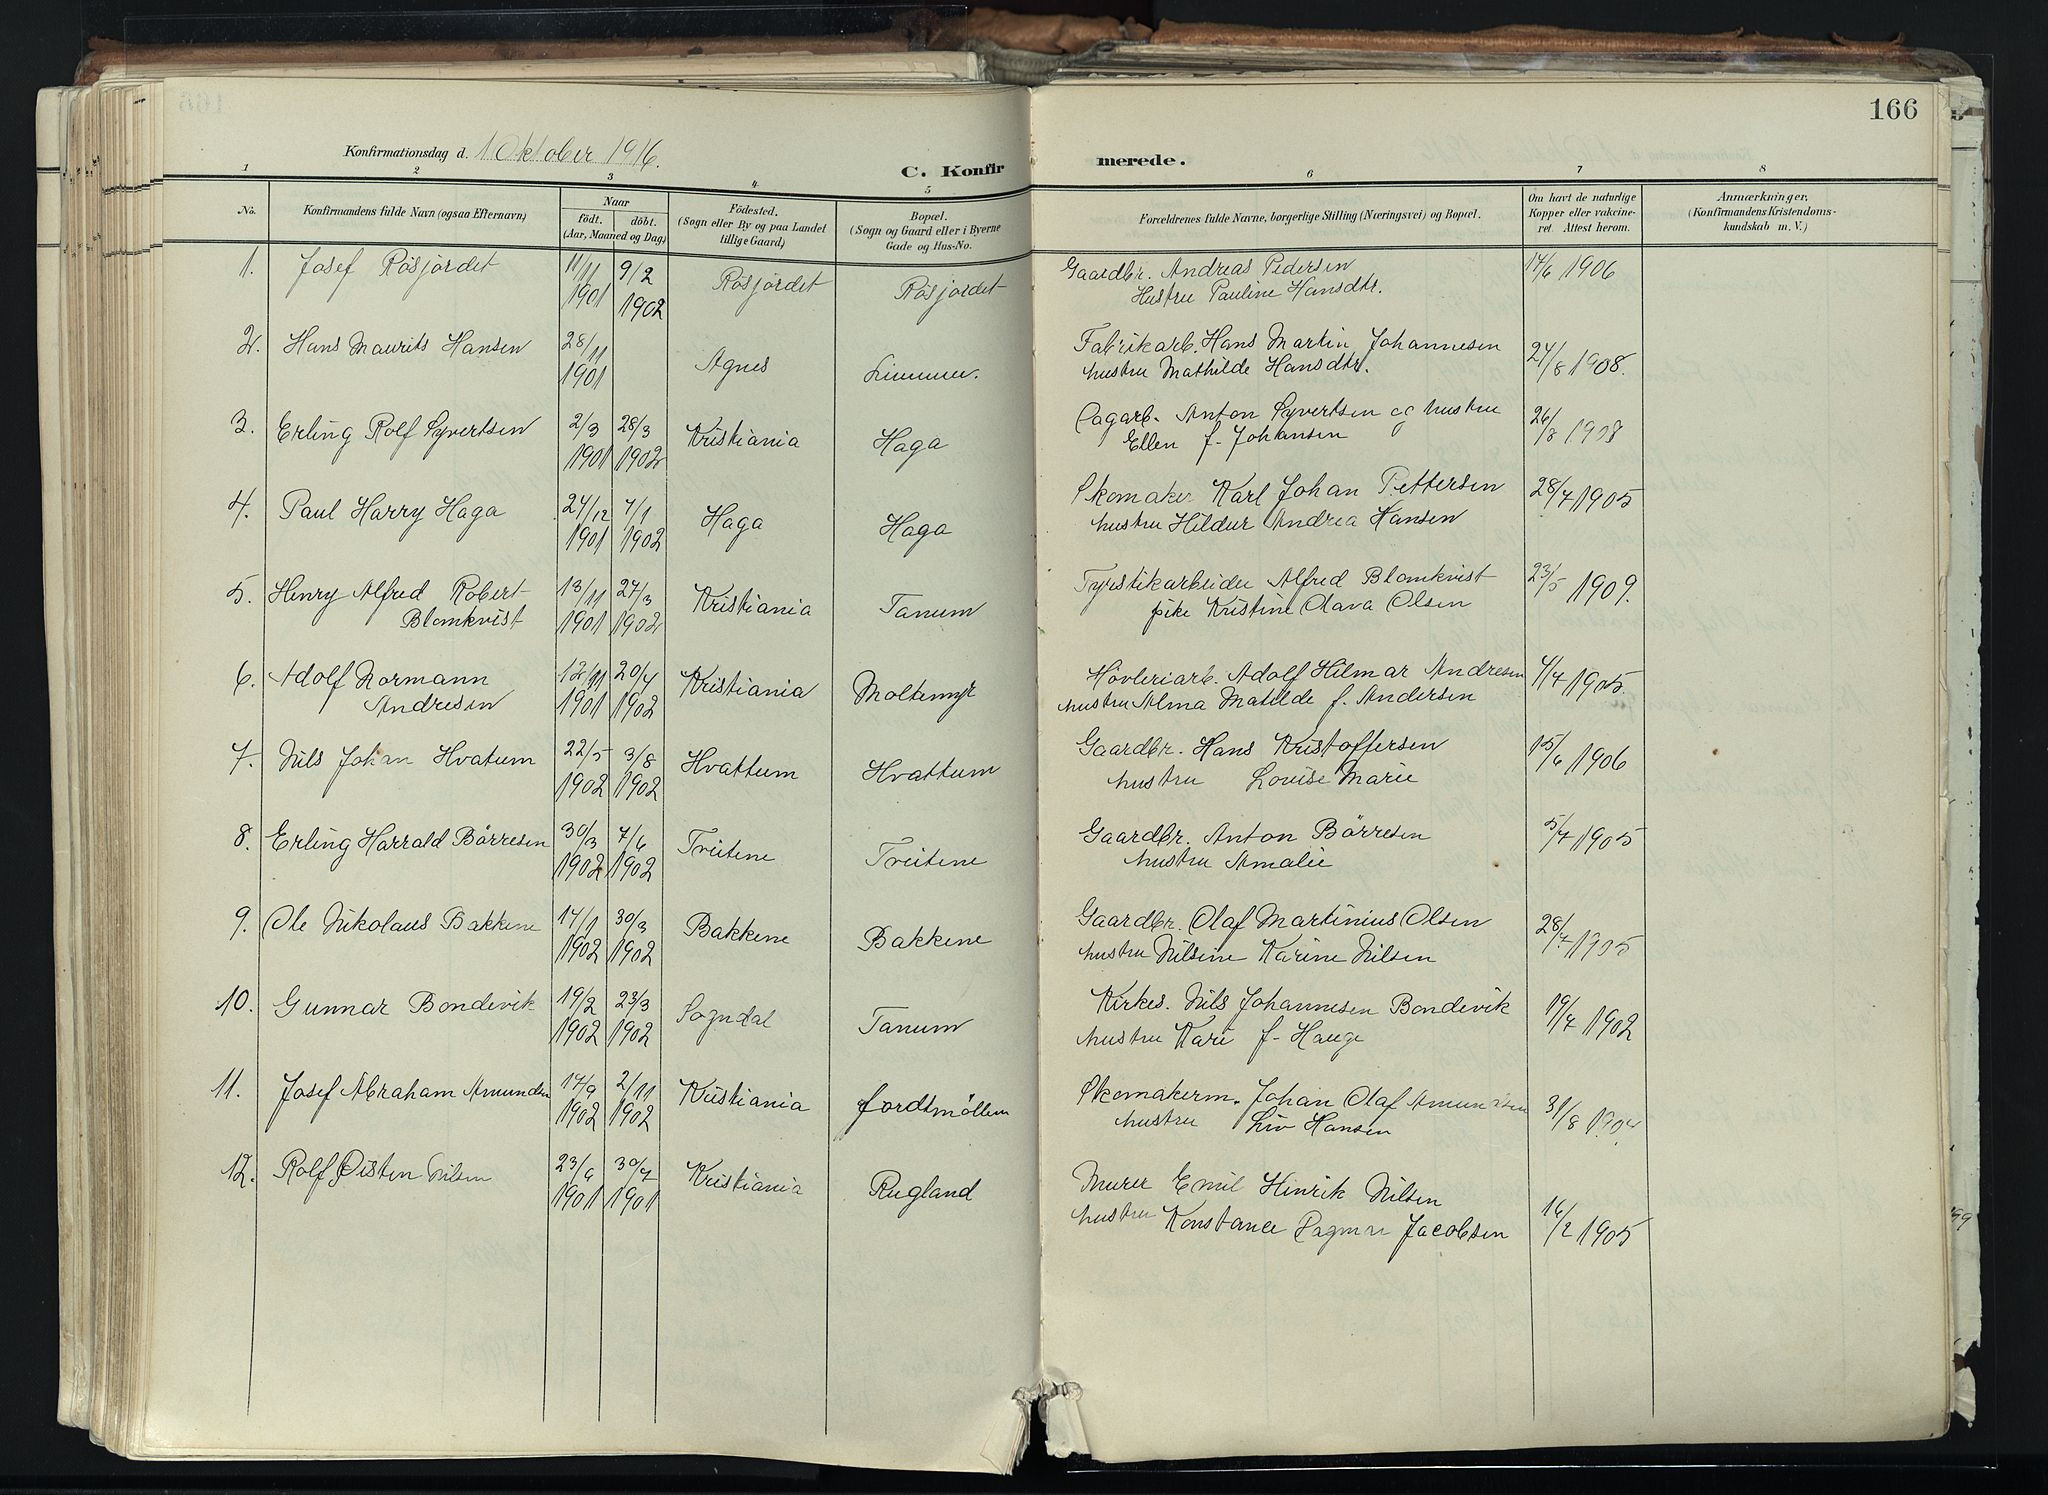 166
Konfirmationsdag d. 1 Oktober 1916.
C. Konfirmerede.
1 2 3 4 5 6 7 8
No.
Konfirmandens fulde Navn (ogsaa Efternavn)
Naar
födt. döbt.
(Aar, Maaned og Dag)
Födested.
(Sogn eller By og paa Landet
tillige Gaard)
Bopæl.
(Sogn og Gaard eller i Byerne
Gade og Hus-No.
Forældrenes fulde Navne, borgerlige Stilling (Næringsvei) og Bopæl.
Om havt de naturlige
Kopper eller vakcine-
ret. Attest herom.
Anmærkninger.
(Konfirmandens Kristendoms-
kundskab m. V.)
1. Josef Rösjordet 11/11 1901 9/2 1902 Rösjordet Rösjordet Gaardbr. Andreas Pedersen
Hustru Pauline Hansdtr. 14/6 1906
2. Hans Maurits Hansen 28/11 1901 Agnes Fabrikarb. Hans Martin Johannesen
hustru Mathilde Hansdtr. 24/8 1908.
3. Erling Rolf Syvertsen 2/3 1901 28/3 1902 Kristiania Haga Anton Syvertsen og hustru
Ellen f. Johansen 26/8 1908
4. Paul Harry Haga 24/12 1901 7/1 1902 Haga Haga Skomaker Karl Johan Pettersen
hustru Hildur Andrea Hansen 28/4 1905
5. Henry Alfred Robert
Blomkvist 13/11 1901 24/3 1902 Kristiania Tanum Fyrstikarbeider Alfred Blomkvist
pike Kristine Olava Olsen 23/5 1909.
6. Adolf Normann
Andresen 12/11 1901 20/4 1902 Kristiania Moltemyr Hövleriarb. Adolf Hilmar Andresen
hustru Alma Matilde f. Andersen 4/4 1905.
7. Nils Johan Hvatum 22/5 1902 3/8 1902 Hvattum Hvattum Gaardbr. Hans Kristoffersen
hustru Lovise Marie 15/6 1906
8. Erling Harrald Börresen 30/3 1902 7/6 1902 Tveitene Tveitene Gaardbr. Anton Börresen
hustru Amalie 5/4 1905
9. Ole Nikolaus Bakkene 14/1 1902 30/3 1902 Bakkene Bakkene Gaardbr. Olaf Martinius Olsen
hustru Nilsine Karine Nilsen 28/4 1905
10. Gunnar Bondevik 19/2 1902 23/3 1902 Sogndal Tanum Kirkes. Nils Johannesen Bondevik
hustru Kari f. Hauge 19/4 1902
11. Josef Abraham Amundsen 14/9 1902 2/11 1902 Kristiania Skomakerm. Johan Olaf Amundsen
hustru Liv Hansen 31/8 1904
12. Rolf Öisten Nilsen 23/6 1901 30/7 1901 Kristiania Rugland Murer Emil Hinrik Nilsen
hustru Konstance Dagmar Jacobsen 16/2 1905